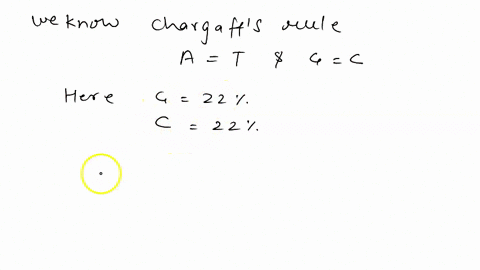 we know chargaff's rule
A = T & G = C
Here G = 22%.
C = 22%.